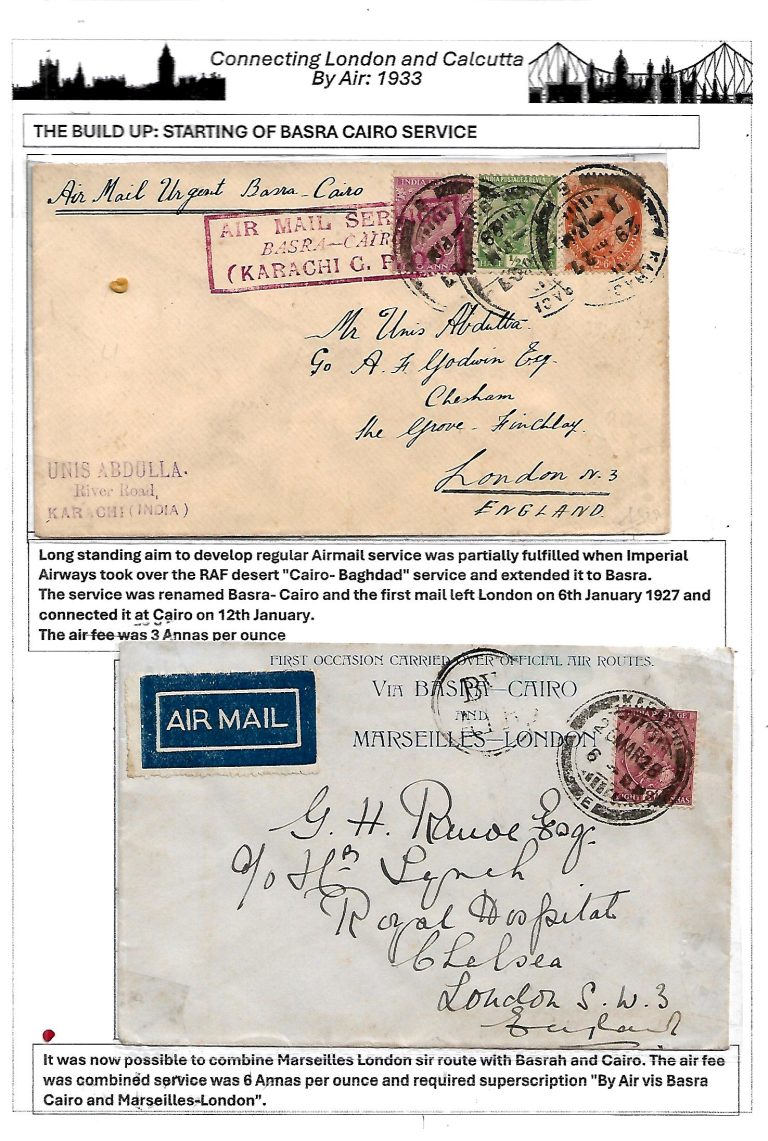 Connecting London and Calcutta
By Air: 1933
THE BUILD UP: STARTING OF BASRA CAIRO SERVICE
Air Mail Urgent Basra-Cairo
AIR MAIL SER
BASRA-CAIR
(KARACHI G. P. O
INDIA POSTAGE & REVEN
Mr Unis Abdulla
C/o A. F. Godwin Esq.
Chesham
The Grove - Finchlay.
London N. 3
ENGLAND
UNIS ABDULLA.
River Road,
KARACHI (INDIA)
Long standing aim to develop regular Airmail service was partially fulfilled when Imperial
Airways took over the RAF desert "Cairo- Baghdad" service and extended it to Basra.
The service was renamed Basra- Cairo and the first mail left London on 6th January 1927 and
connected it at Cairo on 12th January.
The air fee was 3 Annas per ounce
FIRST OCCASION CARRIED OVER OFFICIAL AIR ROUTES.
VIA BASRA-CAIRO
AND
MARSEILLES-LONDON
BY
AIR MAIL
KARACHI
MAR 28
EIGHT ANNAS
G. H. Esq.
c/o Lynch
Royal Hospital
Chelsea
London S. W. 3
England
It was now possible to combine Marseilles London sir route with Basrah and Cairo. The air fee
was combined service was 6 Annas per ounce and required superscription "By Air vis Basra
Cairo and Marseilles-London".